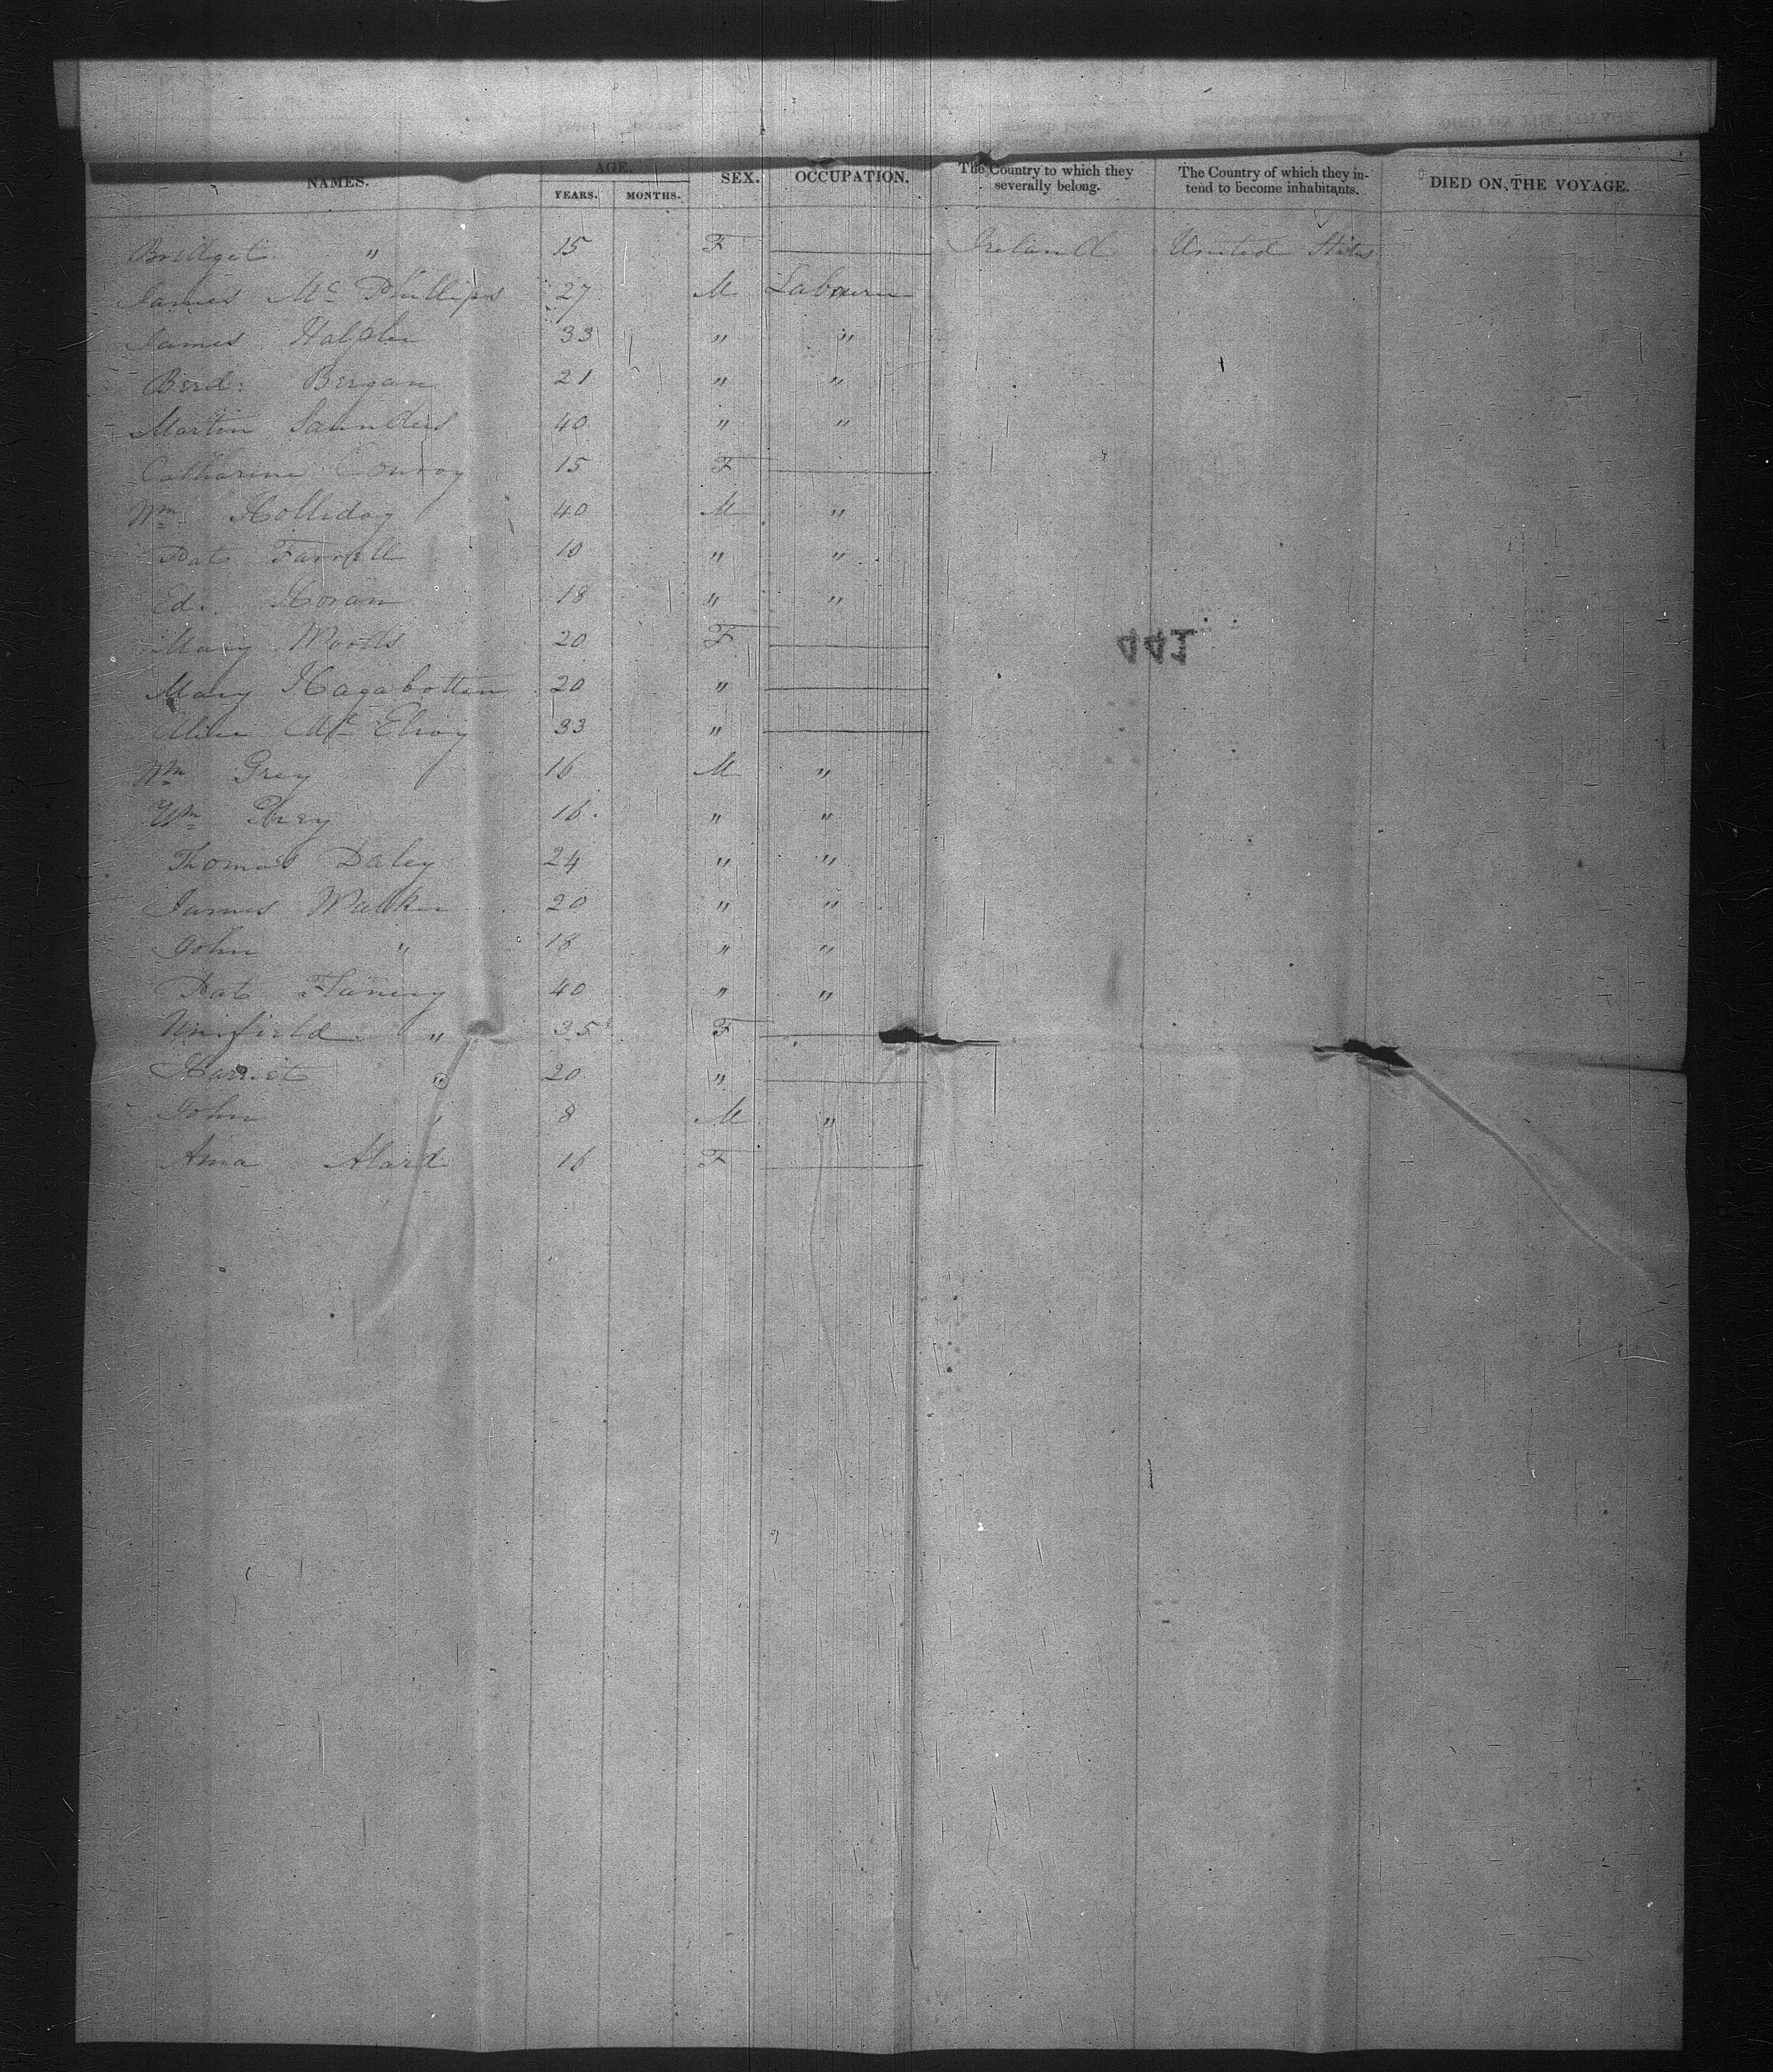 NAMES. AGE. SEX. OCCUPATION. The Country to which they severally belong. The Country of which they in- tend to become inhabitants. DIED ON THE VOYAGE.
YEARS. MONTHS.
Bridget " 15 F Ireland United States
James Mc Phillips 27 M Labourer
James 33 " "
Berd: Bergan 21 " "
Martin Saunders 40 " "
Catharine Conroy 15 F
Wm Holliday 40 M "
Pat Farrell 10 " "
Ed. Horan 18 " "
Mary 20 F
Mary Hagabotten 20 "
Mc Elroy 33 "
Wm Grey 16 M "
Wm Grey 16 " "
Thomas Daley 24 " "
James Walker 20 " "
John " 18 " "
Pat Flanery 40 " "
Unifield " 35 F
Harriet " 20 "
John " 8 M "
Anna Alard 16 F
441